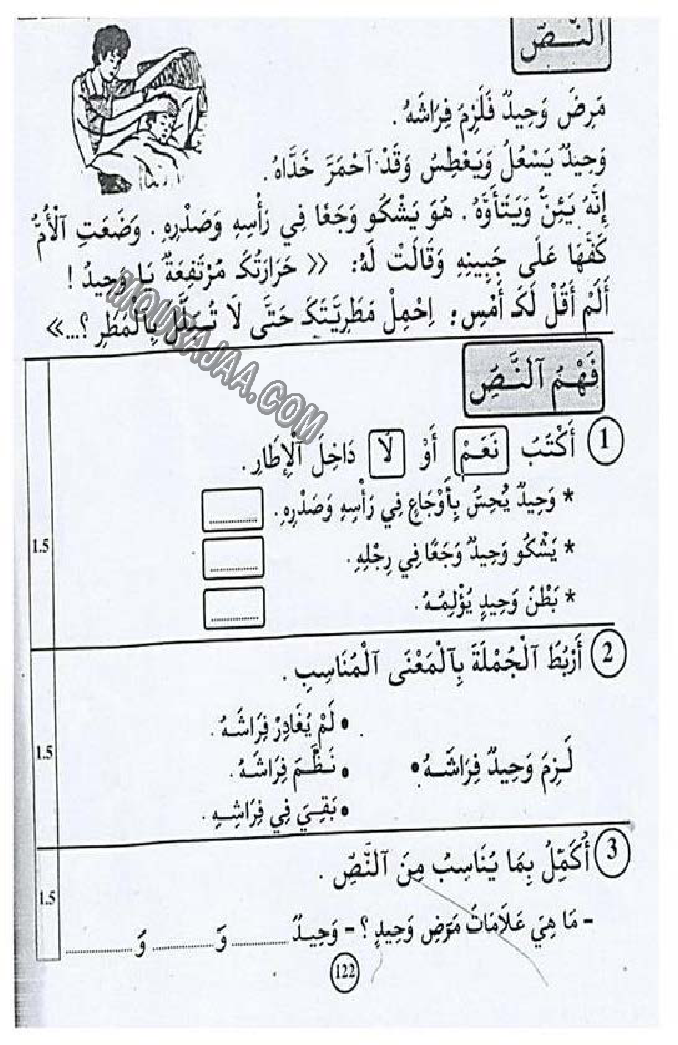 اَلنَّـصّ
مَرِضَ وَحِيدٌ فَلَزِمَ فِرَاشَهُ .
وَحِيدٌ يَسْعُلُ وَيَعْطِسُ وَقَدْ اَحْمَرَّ خَدَّاهُ .
إِنَّهُ يَئِنُّ وَيَتَأَوَّهُ . هُوَ يَشْكُو وَجَعًا فِي رَأْسِهِ وَصَدْرِهِ . وَضَعَتِ اَلْأُمُّ
كَفَّهَا عَلَى جَبِينِهِ وَقَالَتْ لَهُ: « حَرَارَتُكَ مُرْتَفِعَةٌ يَا وَحِيدُ !
أَلَمْ أَقُلْ لَكَ أَمْسِ: اِحْمِلْ مَطَرِيَّتَكَ حَتَّى لَا تُبَلَّلَ بِالْمَطَرِ ؟...»
MOURAJAA.COM
فَهْمُ اَلنَّصِّ
1 أَكْتُبُ نَعَمْ أَوْ لَا دَاخِلَ اَلْإِطَارِ .
* وَحِيدٌ يُحِسُّ بِأَوْجَاعٍ فِي رَأْسِهِ وَصَدْرِهِ . ............
* يَشْكُو وَحِيدٌ وَجَعًا فِي رِجْلِهِ . ............
1.5
* بَطْنُ وَحِيدٍ يُؤْلِمُهُ . ............
2 أَرْبُطُ اَلْجُمْلَةَ بِاَلْمَعْنَى اَلْمُنَاسِبِ .
• لَمْ يُغَادِرْ فِرَاشَهُ .
لَـزِمَ وَحِيدٌ فِرَاشَـهُ • • نَـظَّـمَ فِرَاشَهُ .
1.5
• بَقِيَ فِي فِرَاشِـهِ .
3 أُكَمِّلُ بِمَا يُنَاسِبُ مِنَ اَلنَّصِّ .
1.5
- مَا هِيَ عَلَامَاتُ مَرَضِ وَحِيدٍ ؟ - وَحِيـدٌ ............ وَ ............ وَ ............
122